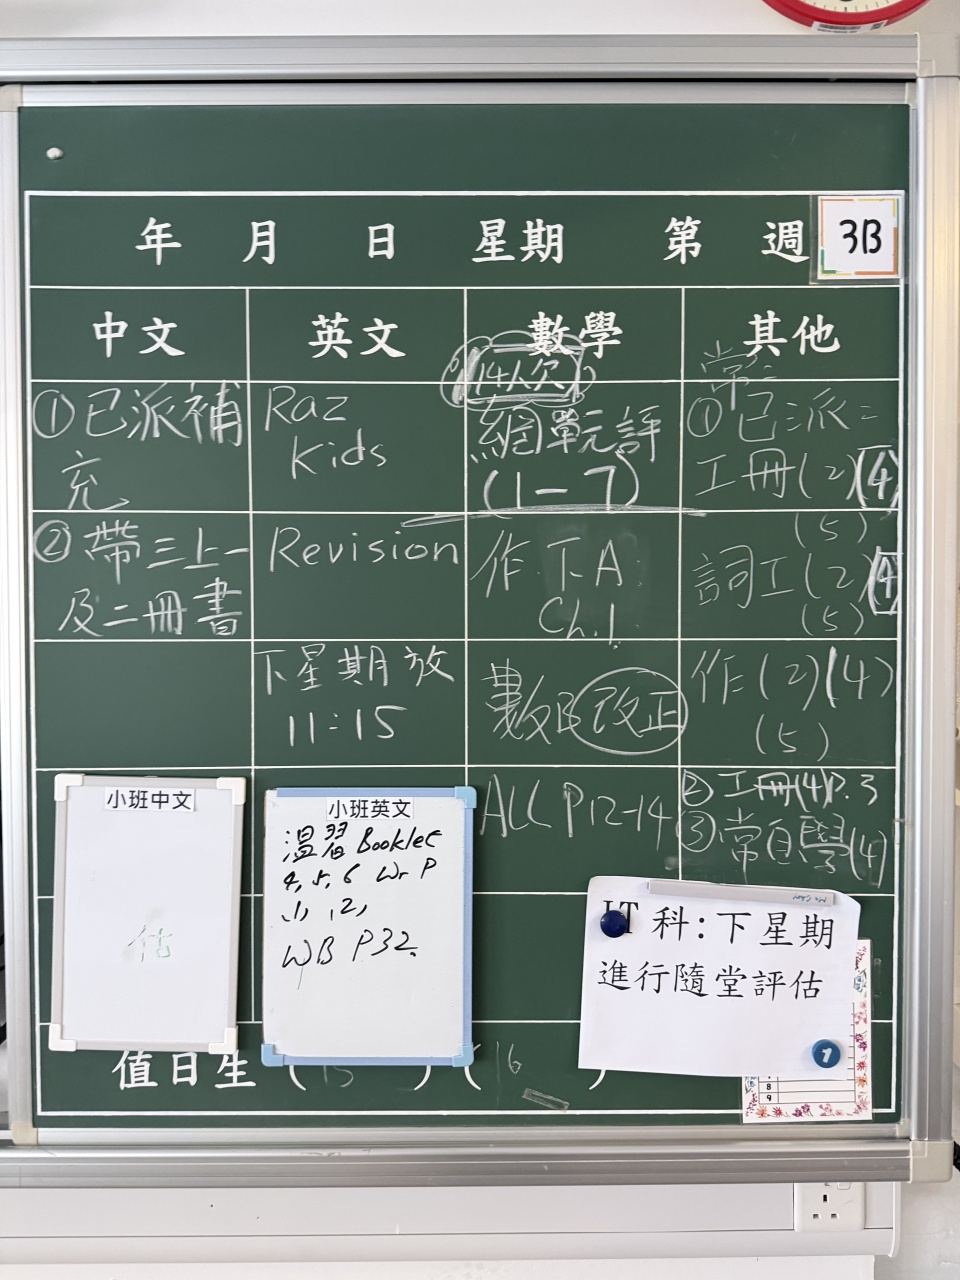 年 月 日 星期 第 週
3B
中文 英文 數學 其他
①已派補
充
②帶三上一
及二冊書
Raz
Kids
Revision
下星期放
11:15
14人欠
網單元評
(1-7)
作 下A
Ch.1
數B改正
ALL P12-14
常:
①已派:
工冊(2)(4)
(5)
詞工(2)(4)
(5)
作(2)(4)
(5)
②工冊(4)P.3
③常自學(4)
小班中文
小班英文
溫習 Booklet
4, 5, 6 Wr P
WB P32.
IT 科:下星期
進行隨堂評估
1
8
9
值日生 (15 ) (16 )